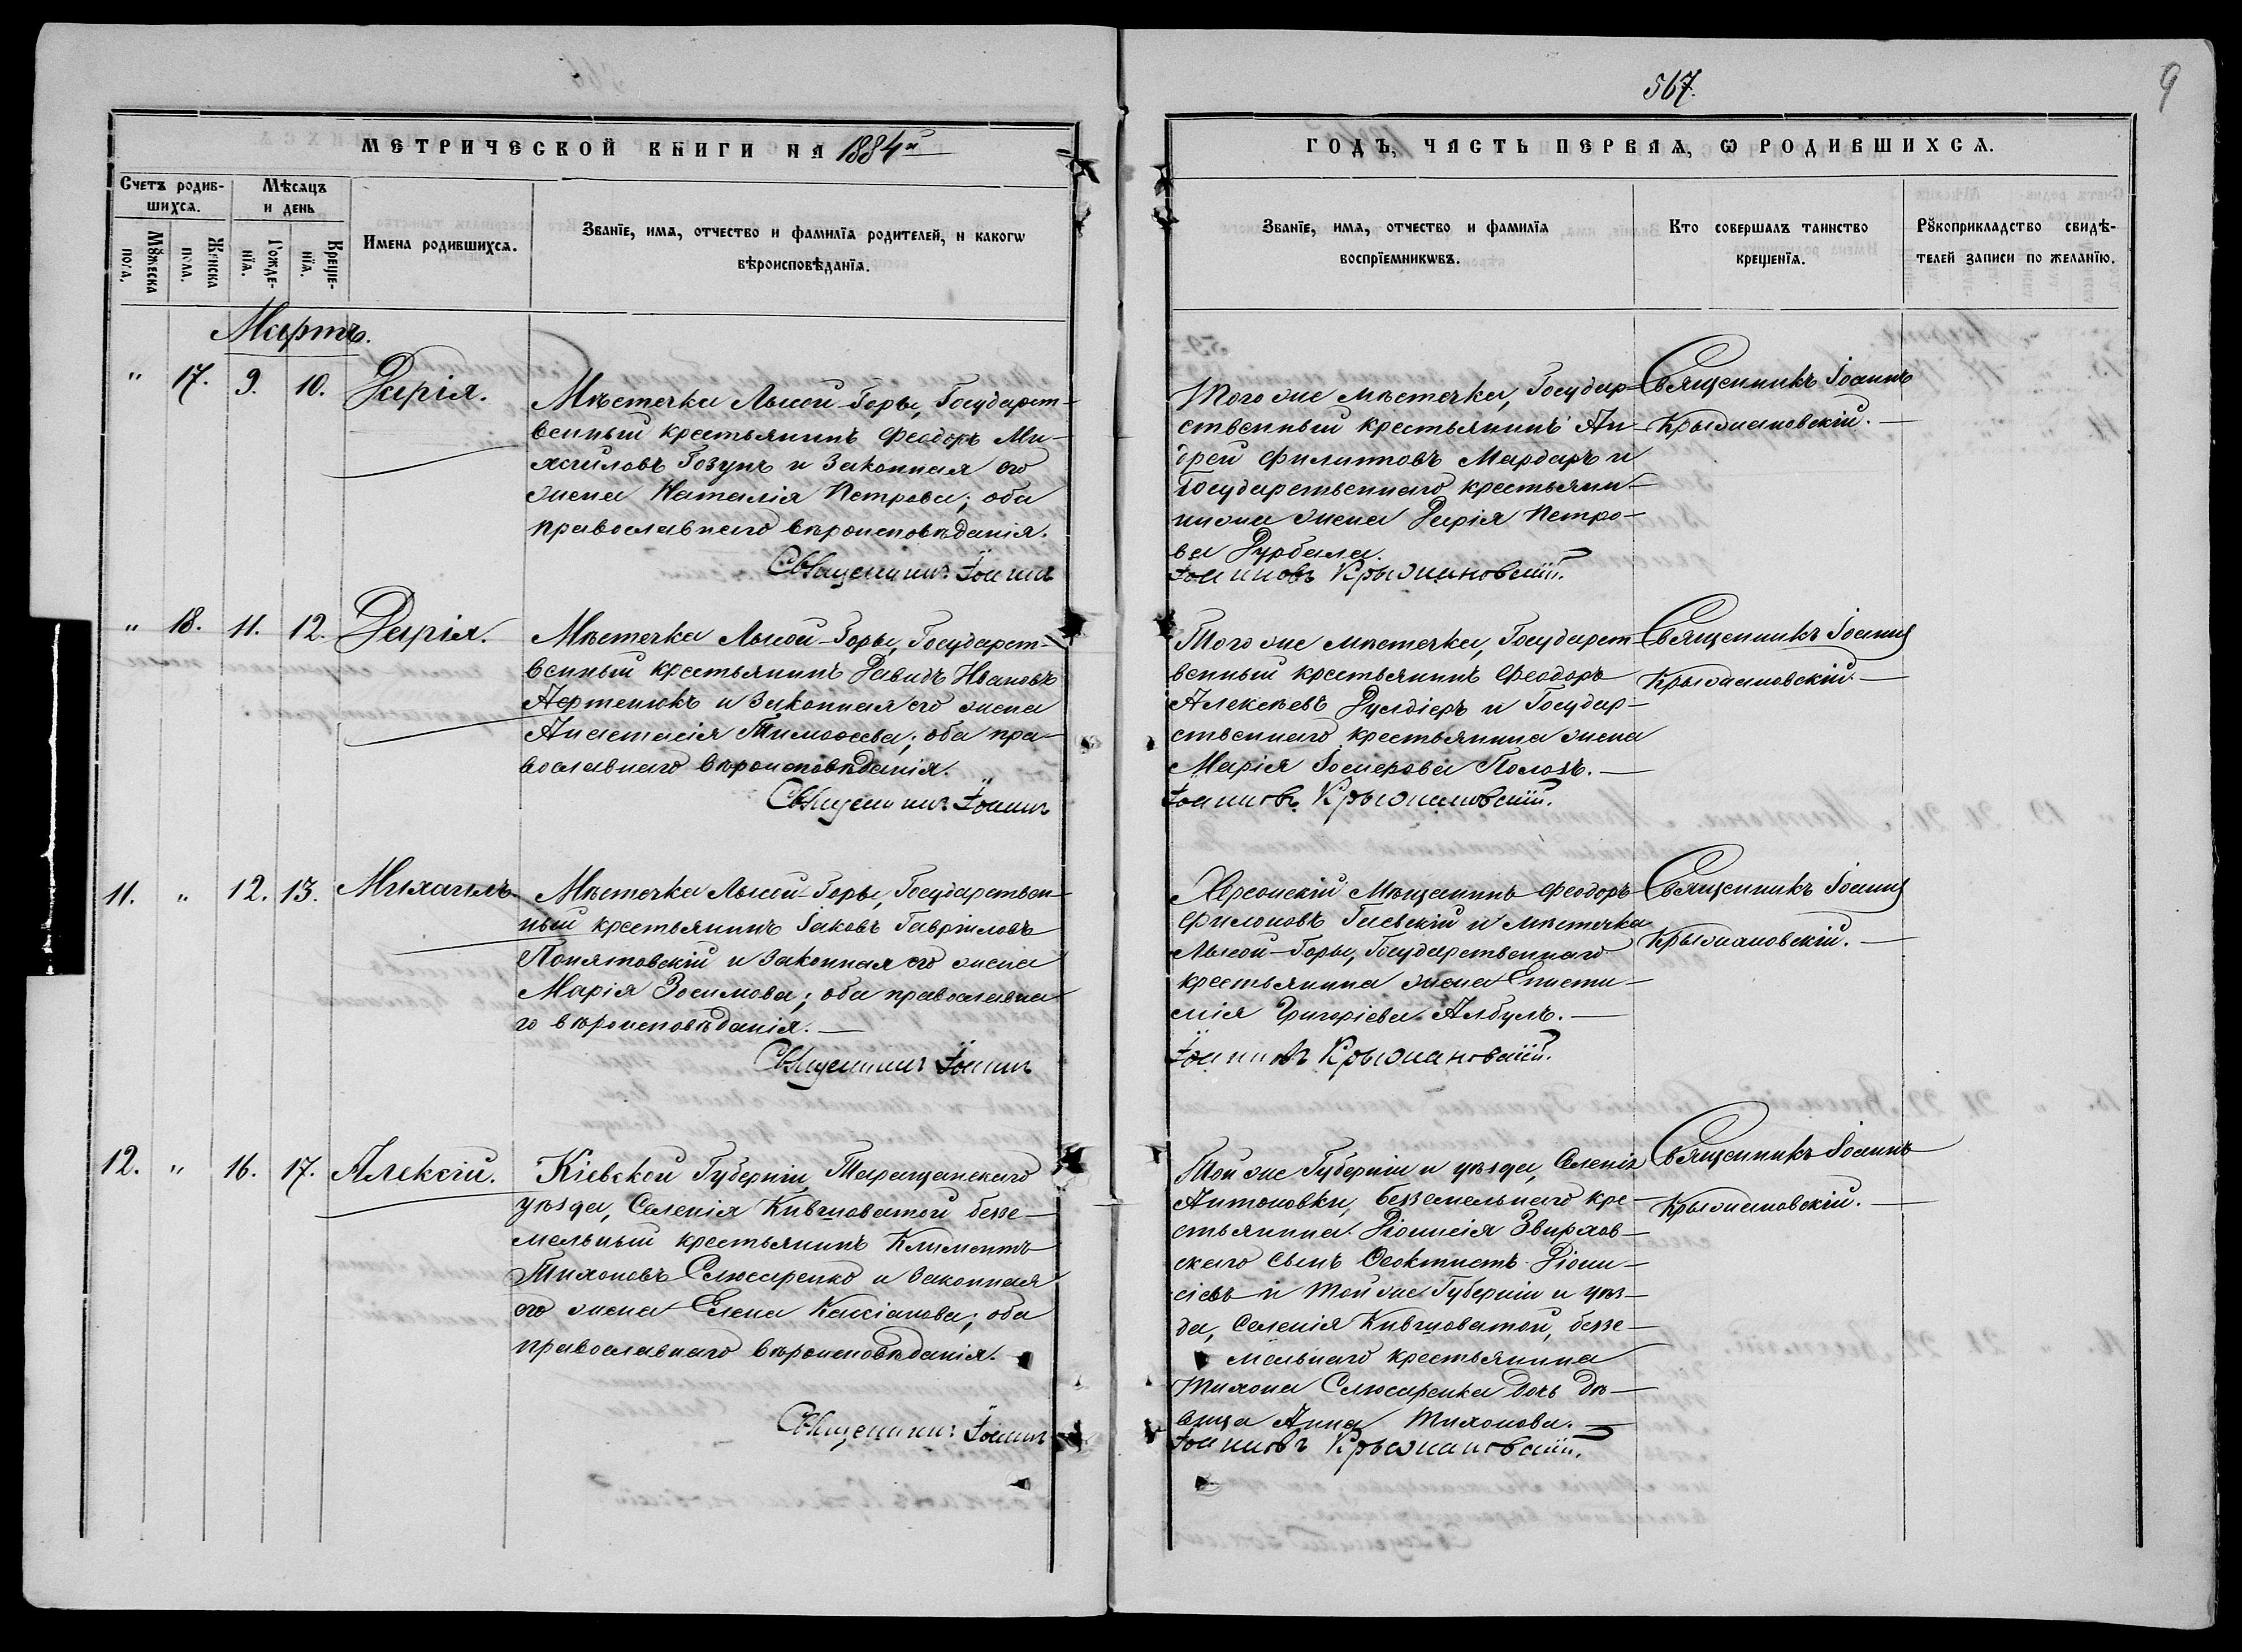 567.
9
МЕТРИЧЕСКОЙ КНИГИ НА 1884й
ГОДЪ, ЧАСТЬ ПЕРВАЯ, Ѡ РОДИВШИХСѦ.
Счетъ родив-
шихсѧ.
Мѣсѧцъ
и день
Мꙋжеска
пола.
Женска
пола.
Рожде-
нїѧ.
Креще-
нїѧ.
Имена родившихсѧ.
Званїе, имѧ, отчество и фамилїѧ родителей, и какогѡ
вѣроисповѣданїѧ.
Званїе, имѧ, отчество и фамилїѧ
воспрїемникѡвъ.
Кто совершалъ таинство
крещенїѧ.
Рꙋкоприкладство свидѣ-
телей записи по желанїю.
Мартъ.
" 17. 9. 10. Дарія.
Мѣстечка Лысой-Горы, Государст-
венный крестьянинъ Феодоръ Ми-
хаиловъ Гозунъ и законная его
жена Наталія Петрова; оба
православнаго вѣроисповѣданія.
Священникъ Іоаннъ
Того же мѣстечка, Государ-
ственный крестьянинъ Ан-
дрей Филипповъ Мардаръ и
Государственнаго крестьяни-
на жена Дарія Петро-
ва Дурбала.
Іоанновъ Крыжановскій.
Священникъ Іоаннъ
Крыжановскій.
" 18. 11. 12. Дарія.
Мѣстечка Лысой-Горы, Государст-
венный крестьянинъ Давидъ Ивановъ
Афтенюкъ и законная его жена
Анастасія Тимофеева; оба пра-
вославнаго вѣроисповѣданія.
Священникъ Іоаннъ
Того же мѣстечка, Государст-
венный крестьянинъ Феодоръ
Алексѣевъ и Государ-
ственнаго крестьянина жена
Марія Полозъ.
Іоанновъ Крыжановскій.
Священникъ Іоаннъ
Крыжановскій.
11. " 12. 13. Михаилъ.
Мѣстечка Лысой-Горы, Государствен-
ный крестьянинъ Іаковъ Гавріиловъ
Понятовскій и законная его жена
Марія Зосимова; оба православна-
го вѣроисповѣданія.
Священникъ Іоаннъ
Херсонскій Мѣщанинъ Феодоръ
Филоновъ Гаевскій и мѣстечка
Лысой-Горы, Государственнаго
крестьянина жена Еписти-
мія Григоріева Албулъ.
Іоанновъ Крыжановскій.
Священникъ Іоаннъ
Крыжановскій.
12. " 16. 17. Алексій.
Кіевской Губерніи, Таращанскаго
уѣзда, Селенія Кившоватой безе-
мельный крестьянинъ Климентъ
Тихоновъ Слюсаренко и законная
его жена Елена Кассіанова; оба
православнаго вѣроисповѣданія.
Священникъ Іоаннъ
Той же Губерніи и уѣзда, Селенія
Антоновки, беззмельнаго кре-
стьянина Діонисія Звирхов-
скаго сынъ Феоктистъ Діони-
сіевъ и той же Губерніи и уѣз-
да, Селенія Кившоватой, безе-
мельнаго крестьянина
Тихона Слюсаренка дочь дѣ-
вица Анна Тихонова.
Іоанновъ Крыжановскій.
Священникъ Іоаннъ
Крыжановскій.